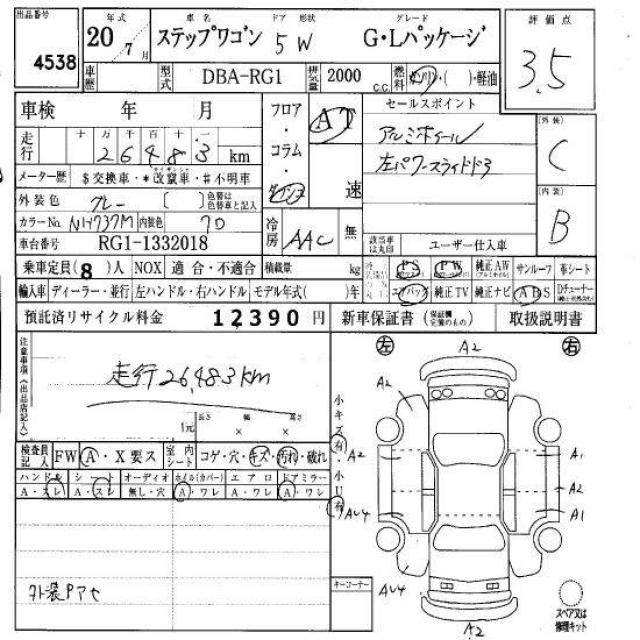 出品番号 年式 車名 ドア 形状 グレード 評価点
4538 20年 7月 ステップワゴン 5 W G・Lパッケージ 3.5
車歴 型式 DBA-RG1 排気量 2000 c.c. 燃料 ガソリン・( )・軽油
車検 年 月 フロア・コラム・インパネ AT 速 セールスポイント
アルミホイール
左パワースライドドア
走行 十 万 千 百 十 一
2 6 4 8 3 km
メーター歴 $交換車・*改竄車・#不明車
外装色 グレー ( ) 色替は色替車と記入
カラーNo NH737M 内装色 70 冷房 AAC 無
車台番号 RG1-1332018 該当車は丸印 ユーザー仕入車
(外装) C
(内装) B
乗車定員(8)人 NOX 適合・不適合 積載量 kg PS PW 純正AW サンルーフ 革シート
輸入車 ディーラー・並行 左ハンドル・右ハンドル モデル年式( )年 エアバッグ 純正TV 純正ナビ ABS Dチューナー
預託済リサイクル料金 12390円 新車保証書 (保証欄完備のもの) 取扱説明書
注意事項(出品店記入)
走行26,483km
1元 長さ × 幅 × 高さ
検査員記入 FW A・X要ス 室内シート コゲ・穴・キズ・汚れ・破れ
ハンドル シート オーディオ ホイル(カバー) エアロ ドアミラー
A・スレ A・スレ 無し・穴 A・ワレ A・ワレ A・ワレ
外装Pアセ
小キズ有
小U有
キーコーナー
左 A2 右
A2
A2 A1
A2
AU4 A1
AU4
A2
スペア又は修理キット